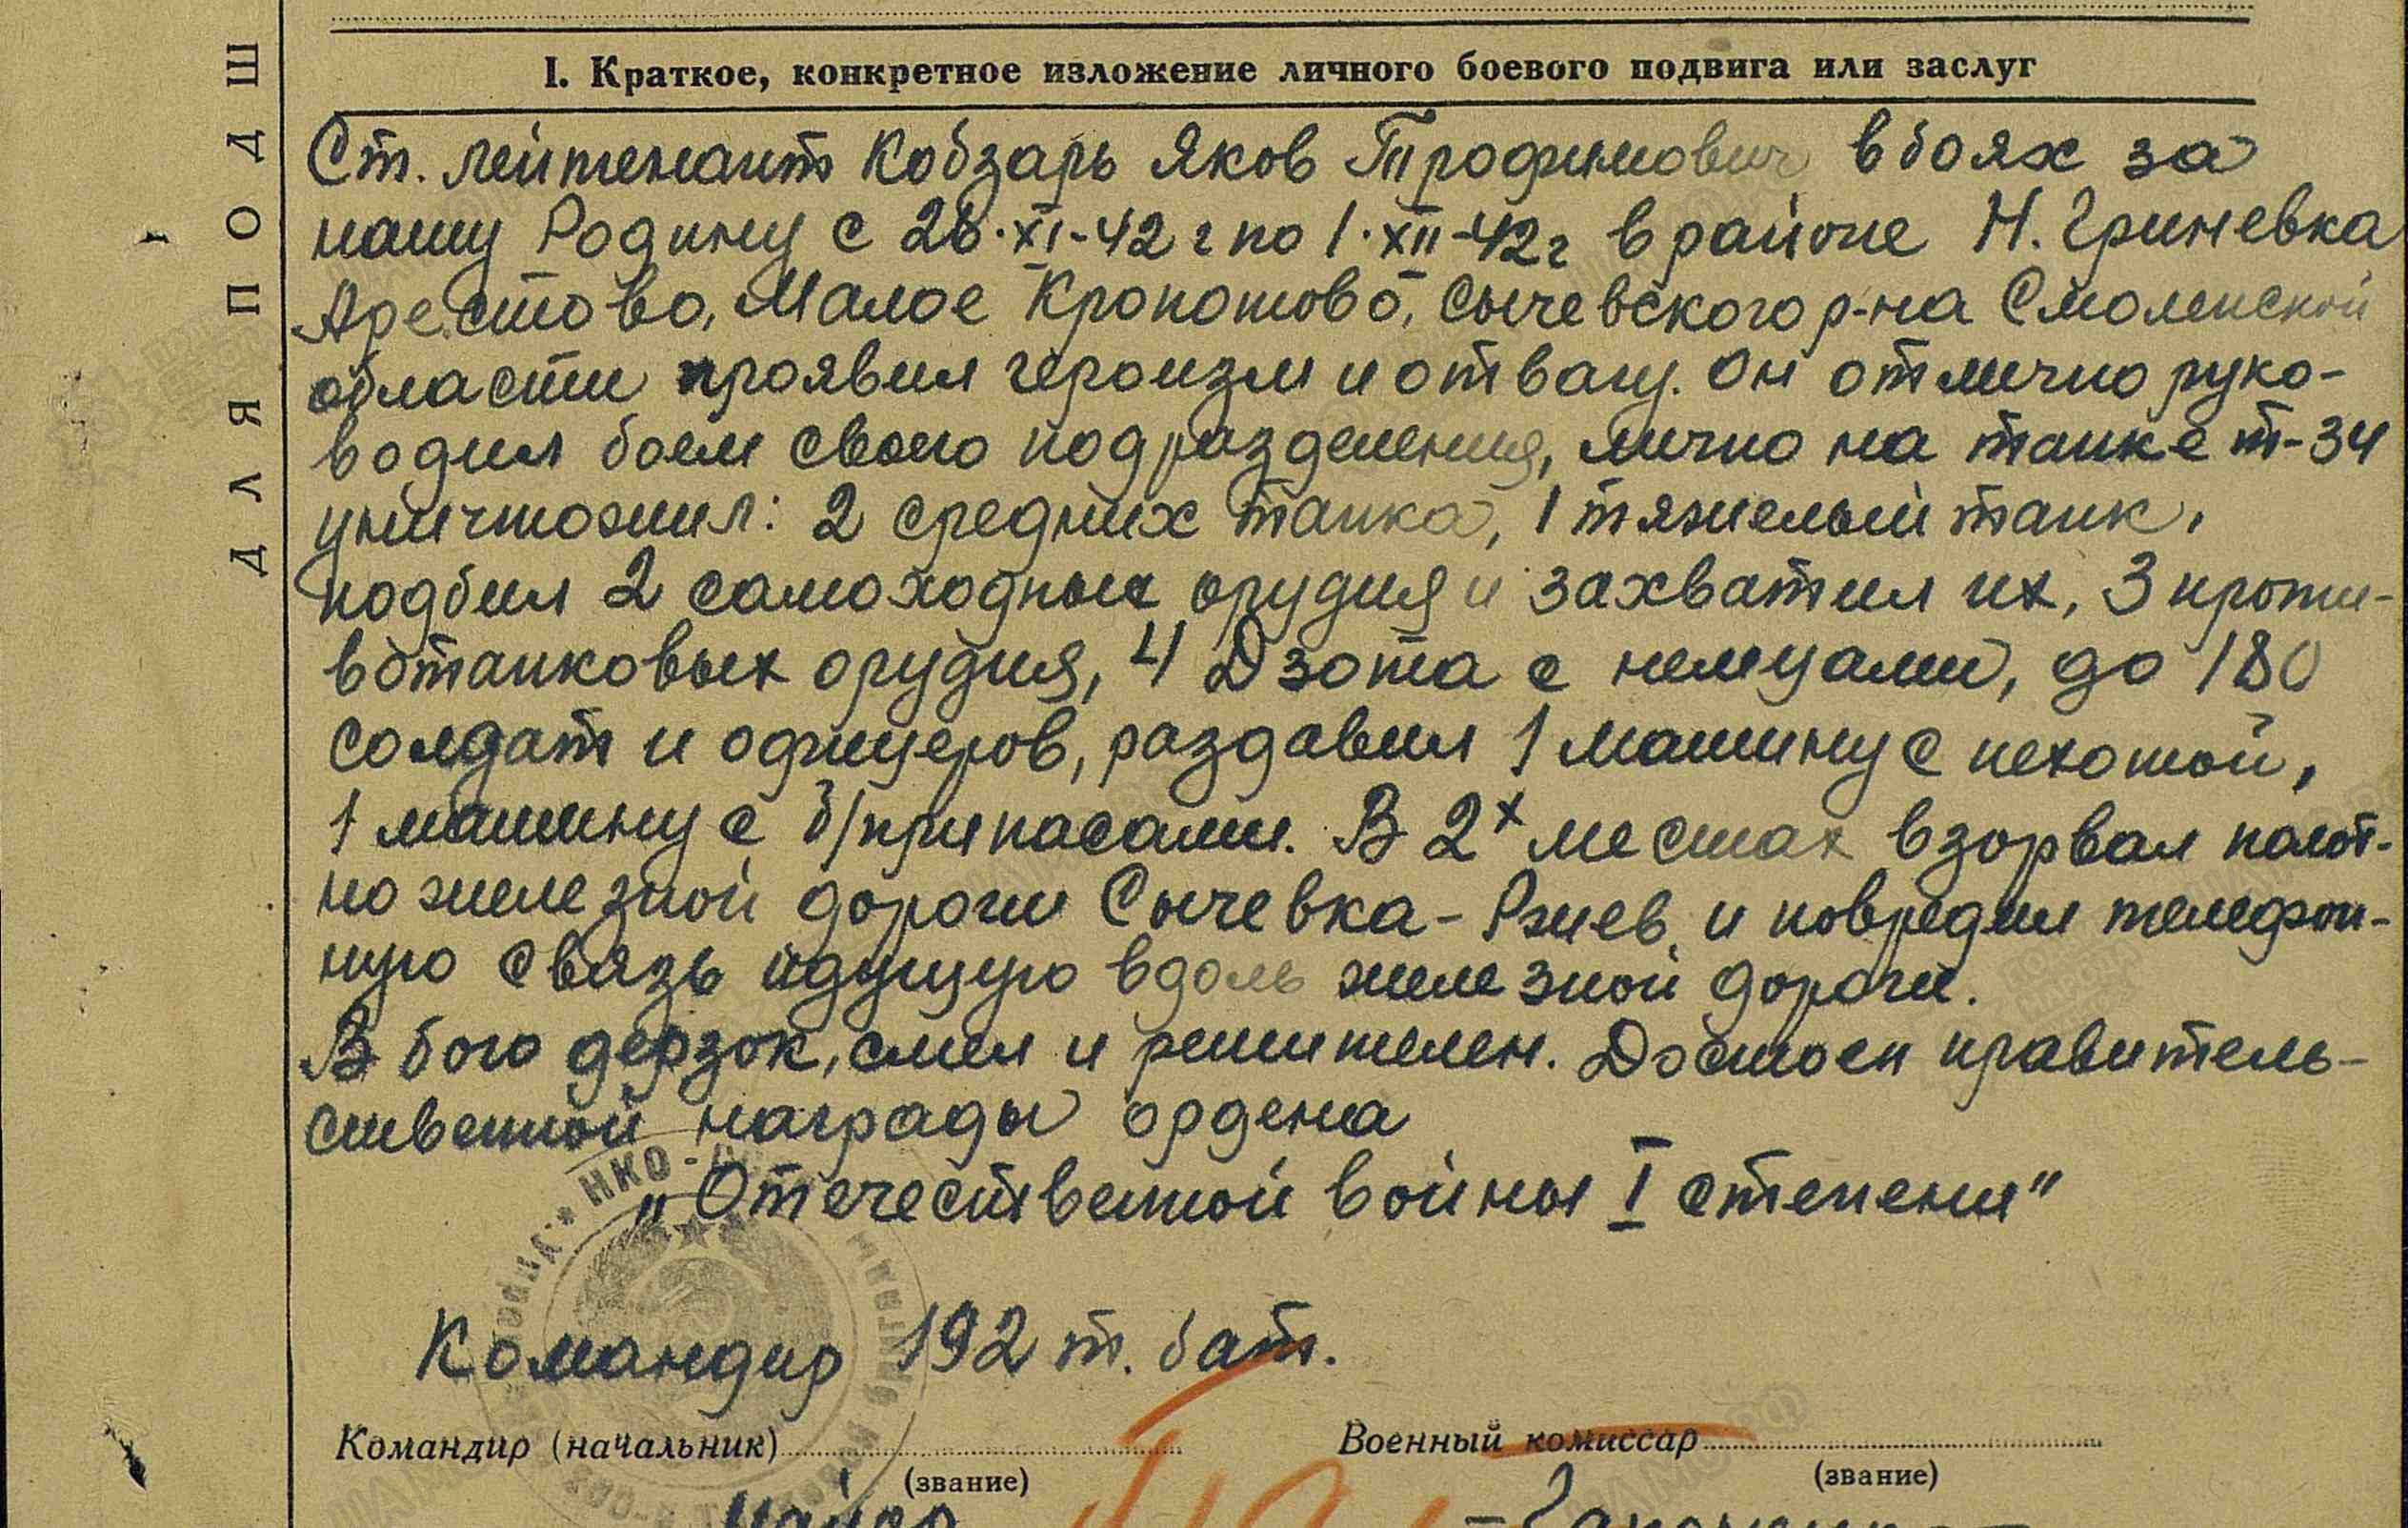 ДЛЯ ПОДШ
I. Краткое, конкретное изложение личного боевого подвига или заслуг
Ст. лейтенант Кобзарь Яков Трофимович в боях за
нашу Родину с 26·XI-42 г по 1·XII-42 г в районе Н. Гриневка
Арестово, Малое Кропотово, Сычевского р-на Смоленской
области проявил героизм и отвагу. Он отлично руко-
водил боем своего подразделения, лично на танке т-34
уничтожил: 2 средних танка, 1 тяжелый танк,
подбил 2 самоходных орудия и захватил их, 3 проти-
вотанковых орудия, 4 Дзота с немцами, до 180
солдат и офицеров, раздавил 1 машину с пехотой,
1 машину с б/припасами. В 2х местах взорвал полот-
но железной дороги Сычевка-Ржев и повредил телефон-
ную связь идущую вдоль железной дороги.
В бою дерзок, смел и решителен. Достоен правитель-
ственной награды ордена
„Отечественной войны I степени"
Командир 192 т. бат.
Командир (начальник) Военный комиссар
(звание) (звание)
Майор